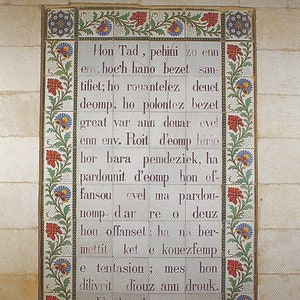 Hon Tad, pehini zo enn
env, hoc'h hano bezet san-
tifiet; ho rouantelez deuet
deomp; ho polontez bezet
great var ann douar evel
enn env. Roit d'eomp hirio
hor bara pemdeziek, ha
pardounit d'eomp hon of-
fansou evel ma pardou-
nomp d'ar re o deuz
hon offanset; ha na ber-
mettit ket e kouezfemp
e tentasion; mes hon
dilivrit diouz ann drouk.